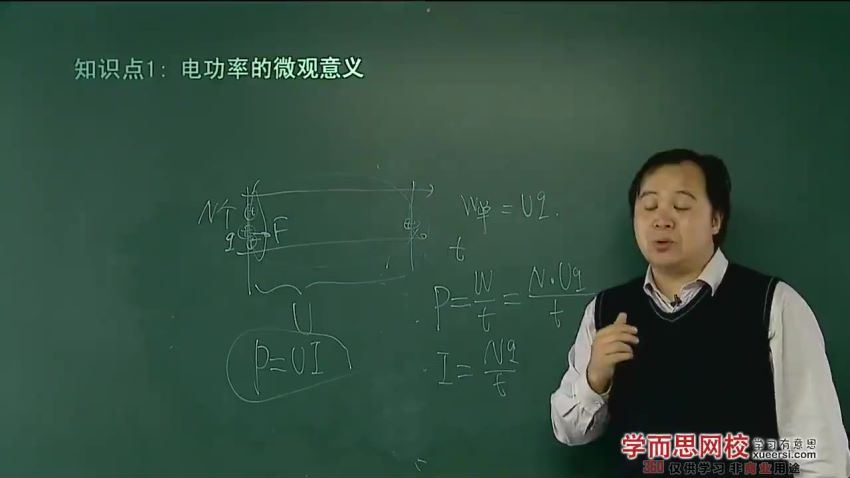 知识点1：电功率的微观意义
N个
q
F
U
P=UI
W单=Uq.
t
P=W/t=N·Uq/t
I=Nq/t
学而思网校
学习有意思
xueersi.com
360 仅供学习 非商业用途